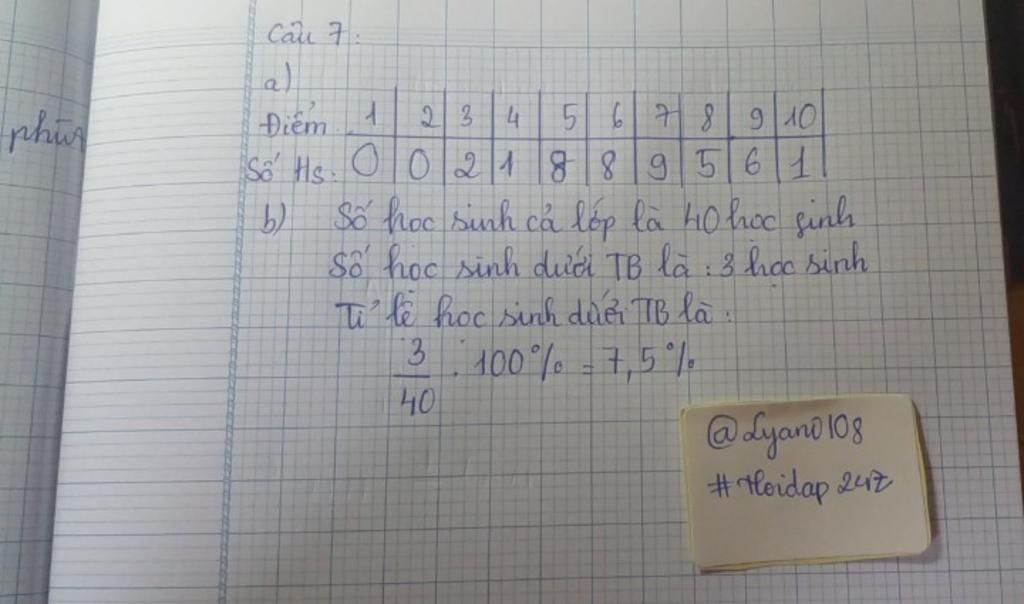 phùn
Câu 7:
a)
Điểm 1 2 3 4 5 6 7 8 9 10
Số Hs: 0 0 2 1 8 8 9 5 6 1
b) Số học sinh cả lớp là 40 học sinh
Số học sinh dưới TB là : 3 học sinh
Tỉ lệ học sinh dưới TB là :
3/40 . 100% = 7,5%
@Lyan0108
#Hoidap247